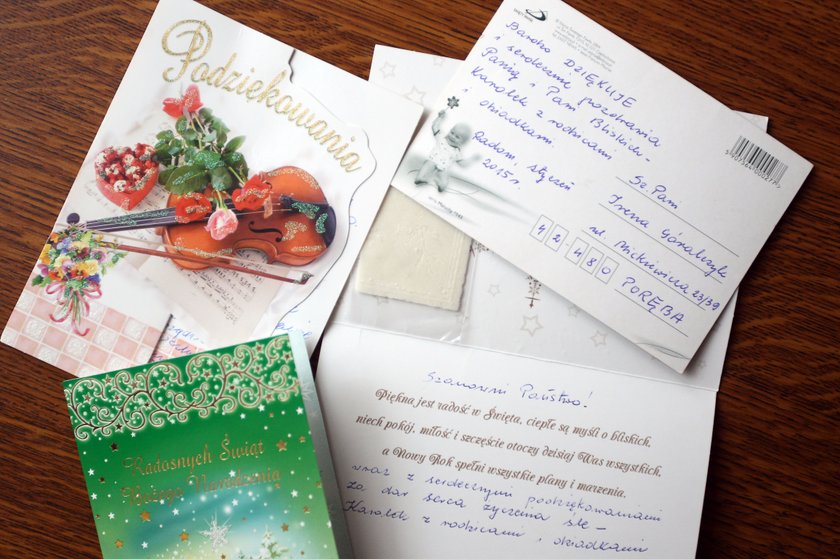 Podziękowania
Bardzo DZIĘKUJE
i serdecznie pozdrawia
Panią i Pani Bliskich -
Karolek z rodzicami
i dziadkami.
Radom, styczeń
2015 r.
Sz. Pam
Irena Góralczyk
ul. Mickiewicza 23/39
42-480 PORĘBA
Szanowni Państwo!
Piękna jest radość w Święta, ciepłe są myśli o bliskich,
niech pokój, miłość i szczęście otoczy dzisiaj Was wszystkich,
a Nowy Rok spełni wszystkie plany i marzenia.
wraz z serdecznymi podziękowaniami
za dar serca życzenia śle -
Karolek z rodzicami i dziadkami
Radosnych Świąt
Bożego Narodzenia